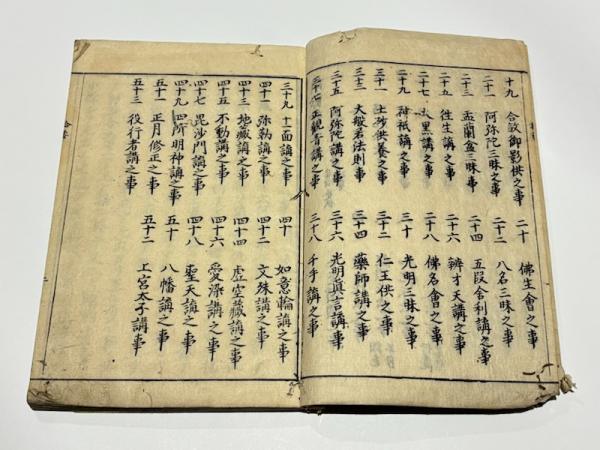 十九 合殺御影供之事
二十 佛生會之事
二十一 阿弥陀三昧之事
二十二 八名三昧之事
二十三 盂蘭盆三昧事
二十四 五段舎利講之事
二十五 往生講之事
二十六 辨才天講之事
二十七 大黒講之事
二十八 佛名會之事
二十九 神祇講之事
三十 光明三昧之事
三十一 土砂供養之事
三十二 仁王供之事
三十三 大般若法則事
三十四 藥師講之事
三十五 阿弥陀講之事
三十六 光明真言講事
三十七 正觀音講之事
三十八 千手講之事
三十九 十一面講之事
四十 如意輪講之事
四十一 弥勒講之事
四十二 文殊講之事
四十三 地藏講之事
四十四 虚空藏講之事
四十五 不動講之事
四十六 愛染講之事
四十七 毘沙門講之事
四十八 聖天講之事
四十九 四所明神講之事
五十 八幡講之事
五十一 正月修正之事
五十二 上宮太子講事
五十三 役行者講之事